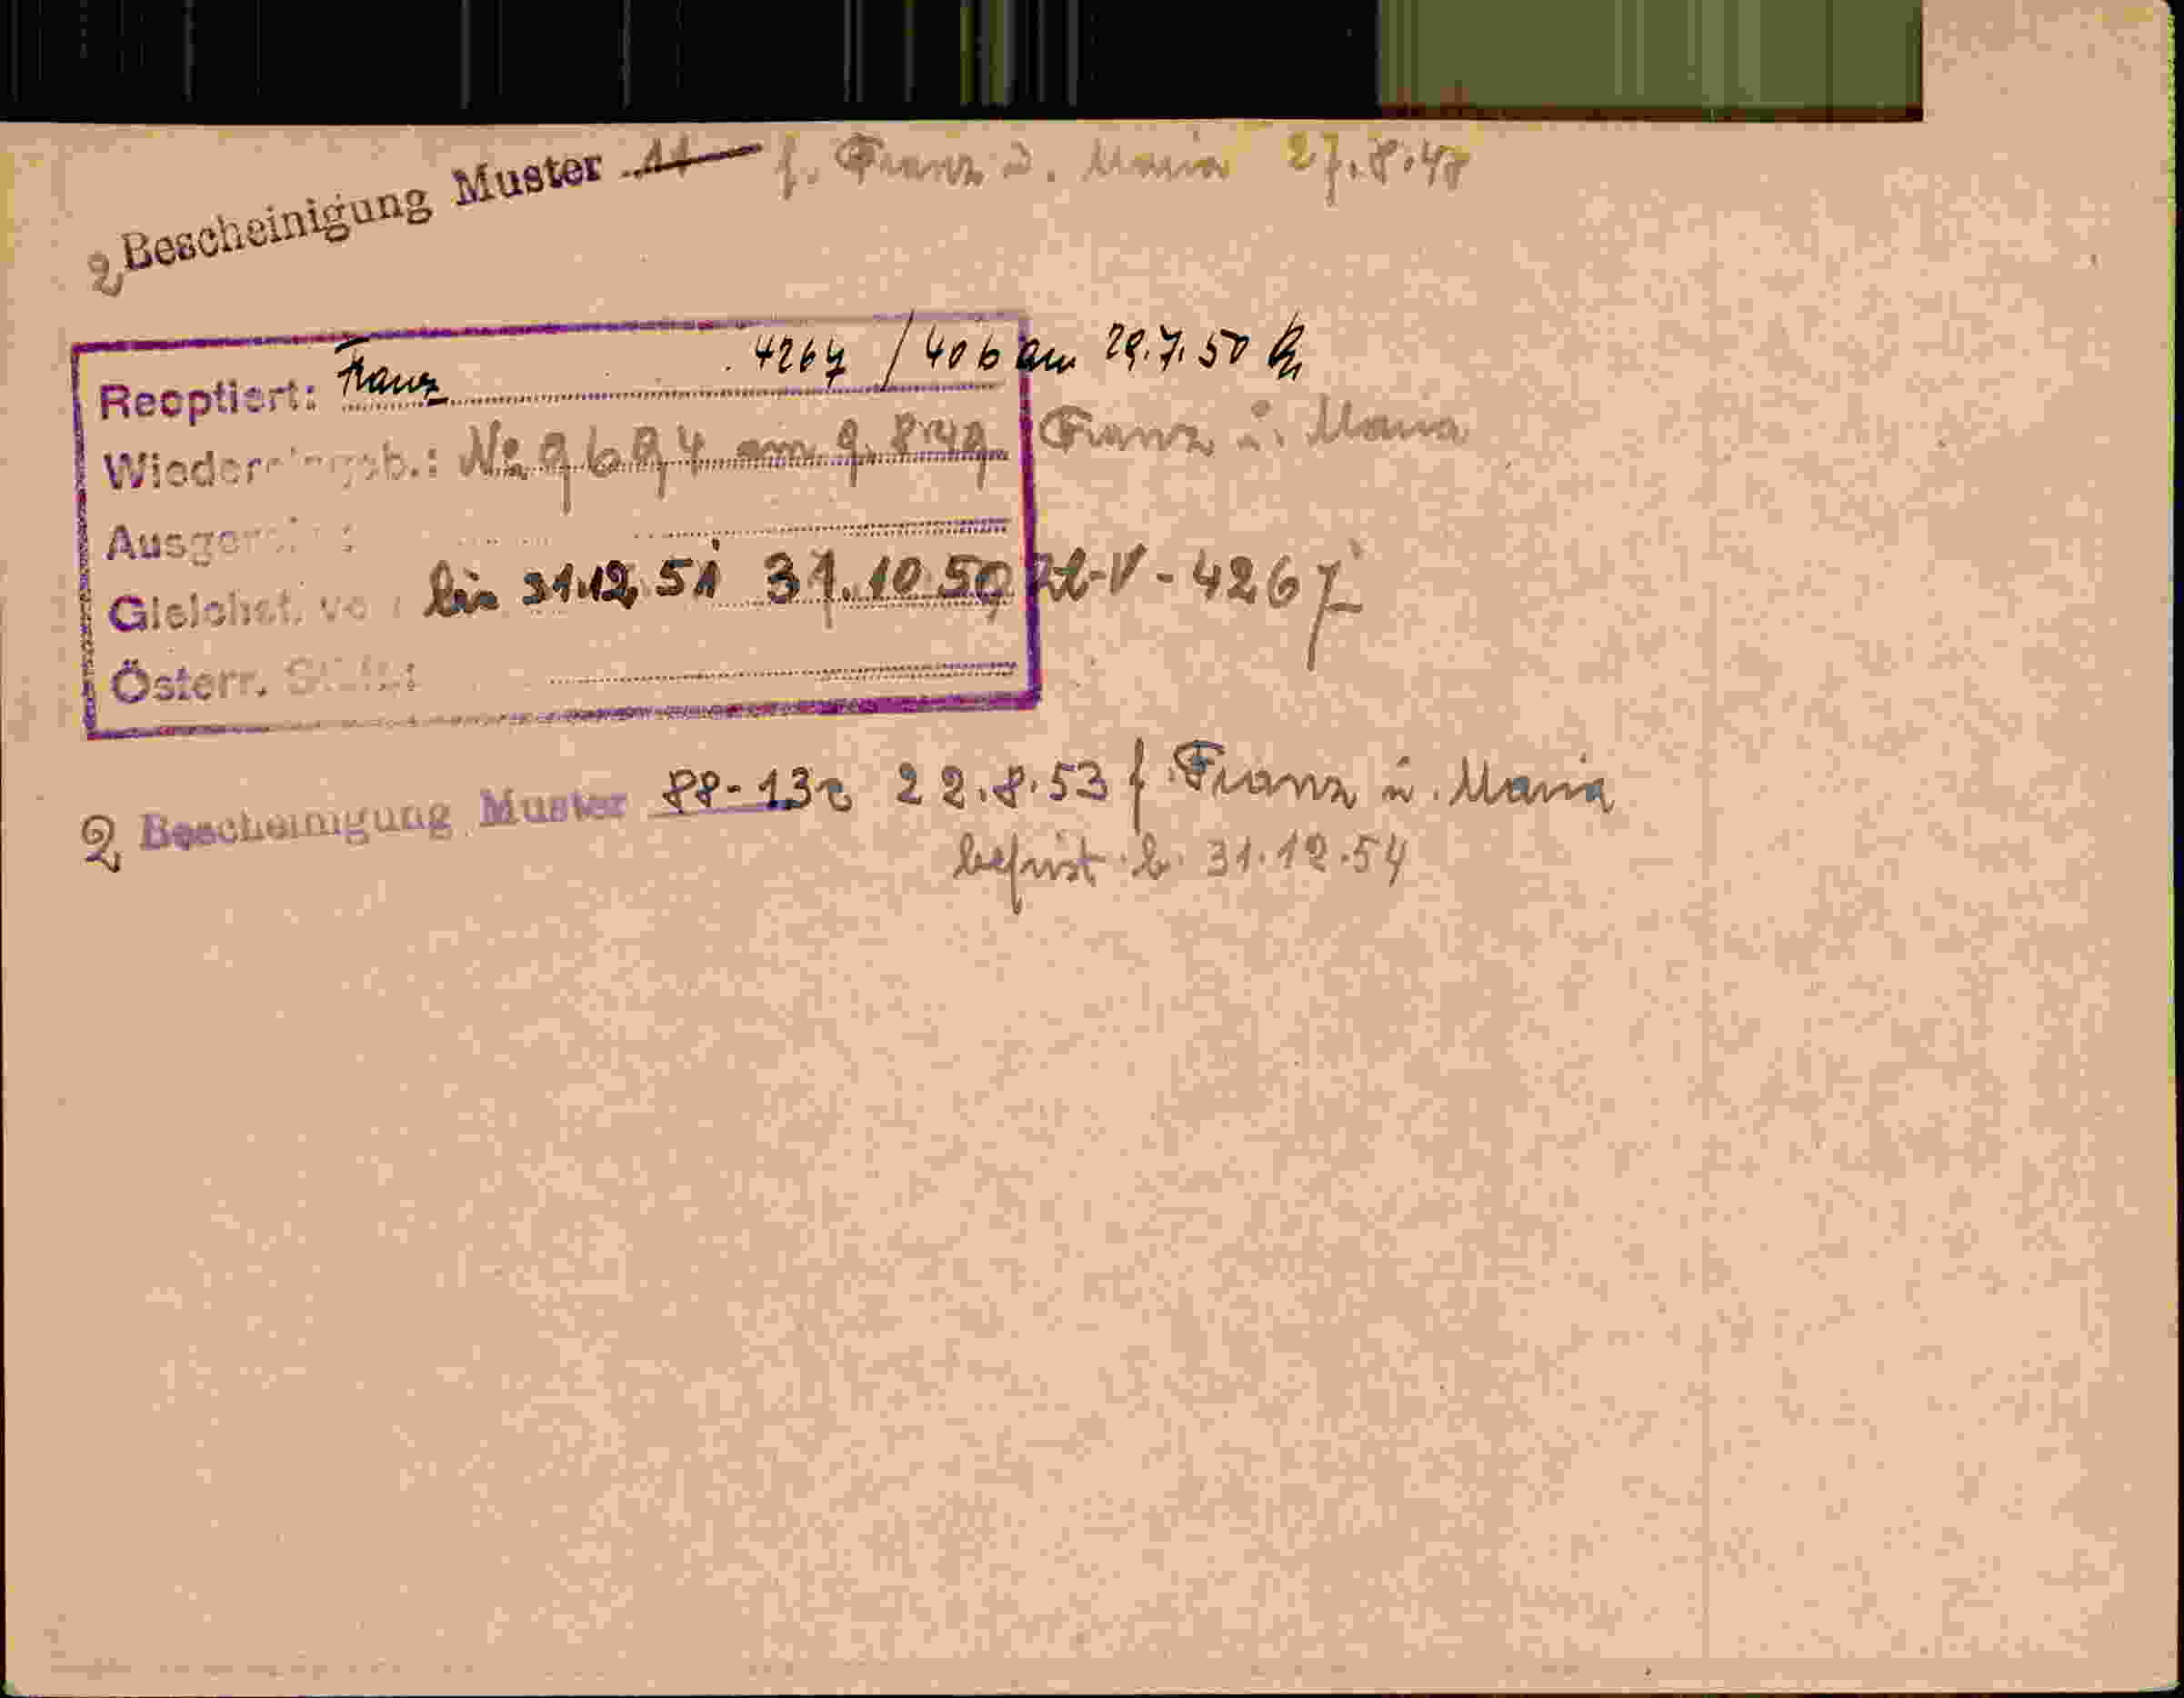 2 Bescheinigung Muster 11 f. Franz u. Maria 27.8.48
Reoptiert: Franz 4267 / 40 b am 29.7.50
Nr 9694 am 9.8.49 Franz u. Maria
Gleichst. bis 31.12.51 31.10.50 -V-4267
Österr.
2 Bescheinigung Muster 88-13c 22.8.53 f. Franz u. Maria
befrist. b. 31.12.54